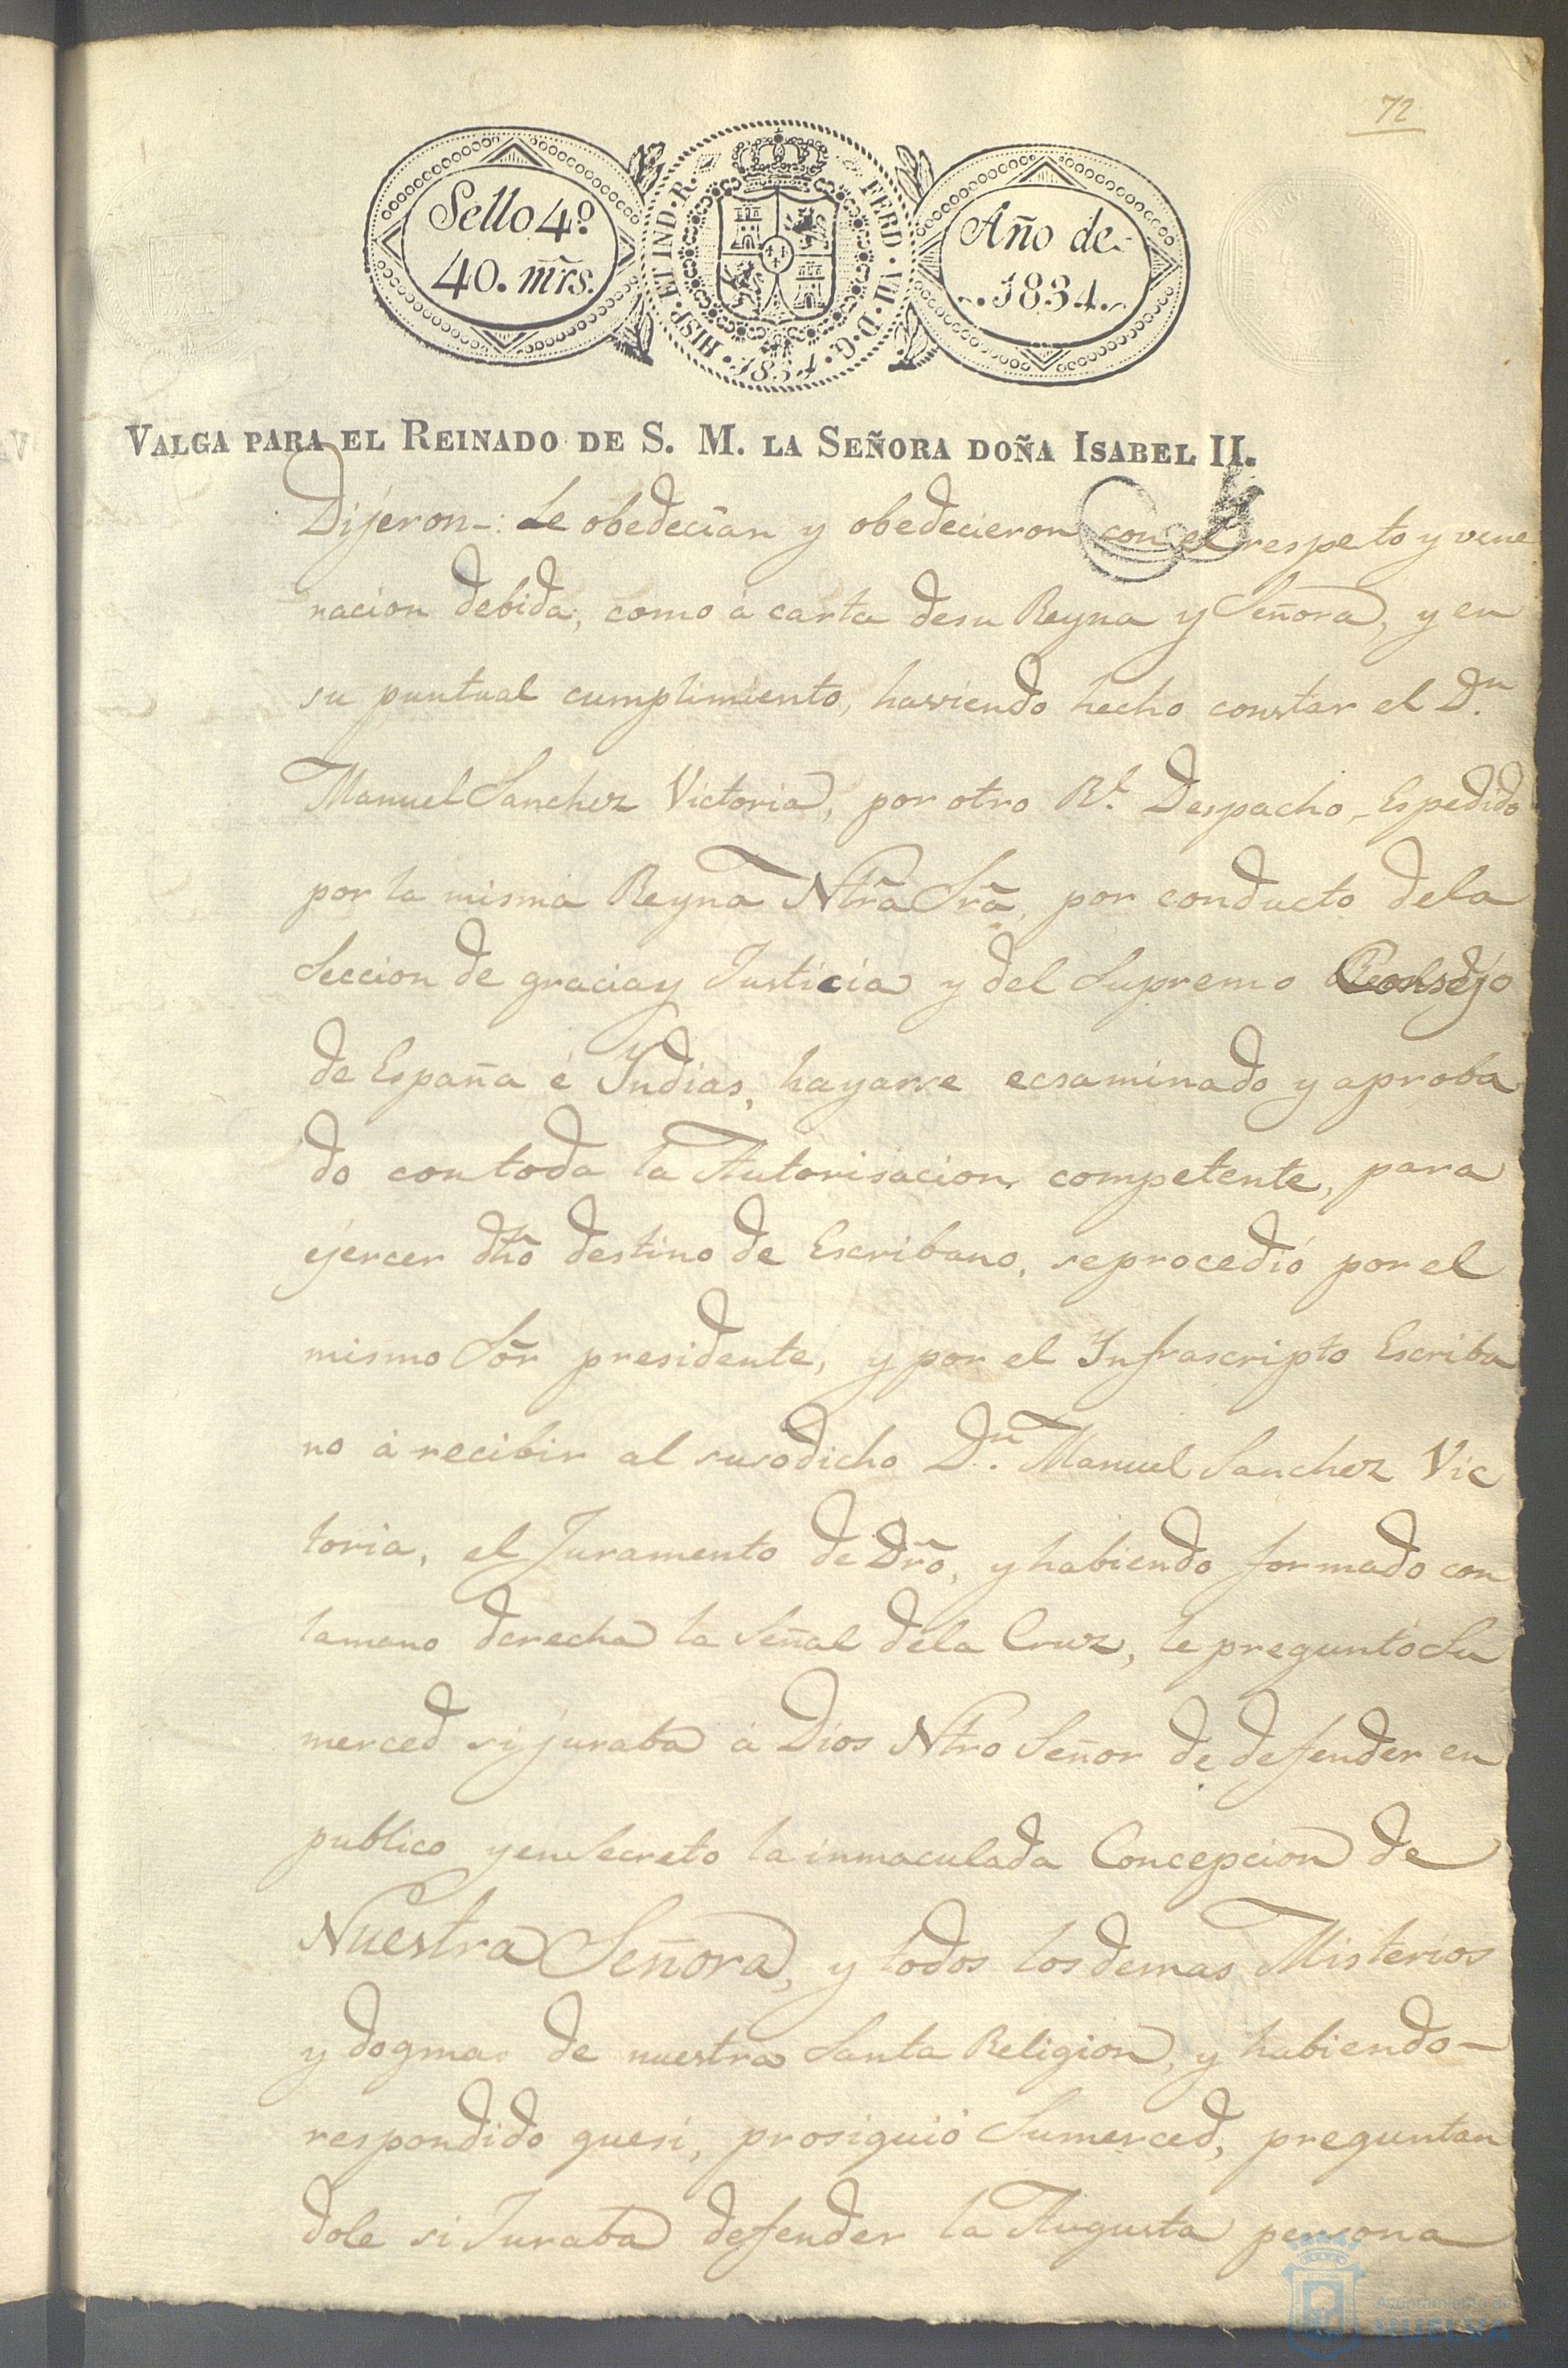 72
Sello 4º
40. mrs.
HISP. ET IND. R. FERD. VII. D. G. 1834.
Año de
1834.
VALGA PARA EL REINADO DE S. M. LA SEÑORA DOÑA ISABEL II.
Dijeron: Le obedecian y obedecieron con el respeto y vene
racion debida, como á carta desu Reyna y Señora, y en
su puntual cumplimiento, haviendo hecho constar el Dn.
Manuel Sanchez Victoria, por otro Rl. Despacho, Espedido
por la misma Reyna Ntrã Srã, por conducto dela
Seccion de gracia y Justicia y del Supremo Consejo
de España é Yndias, hayarse ecsaminado y aproba
do contoda la Autorisacion competente, para
ejercer dhõ destino de Escribano, se procedió por el
mismo Sõr presidente, y por el Infrascripto Escriba
no á recibir al susodicho Dn. Manuel Sanchez Vic
toria, el Juramento de Drõ, y habiendo formado con
lamano derecha la Señal dela Cruz, le preguntó Su
merced si juraba á Dios Ntro Señor de defender en
publico y en Secreto la inmaculada Concepcion de
Nuestra Señora, y todos los demas Misterios
y dogmas de nuestra Santa Religion, y habiendo
respondido quesi, prosiguió Sumerced, preguntan
dole si Juraba defender la Augusta persona
Ayuntamiento de
HUELVA